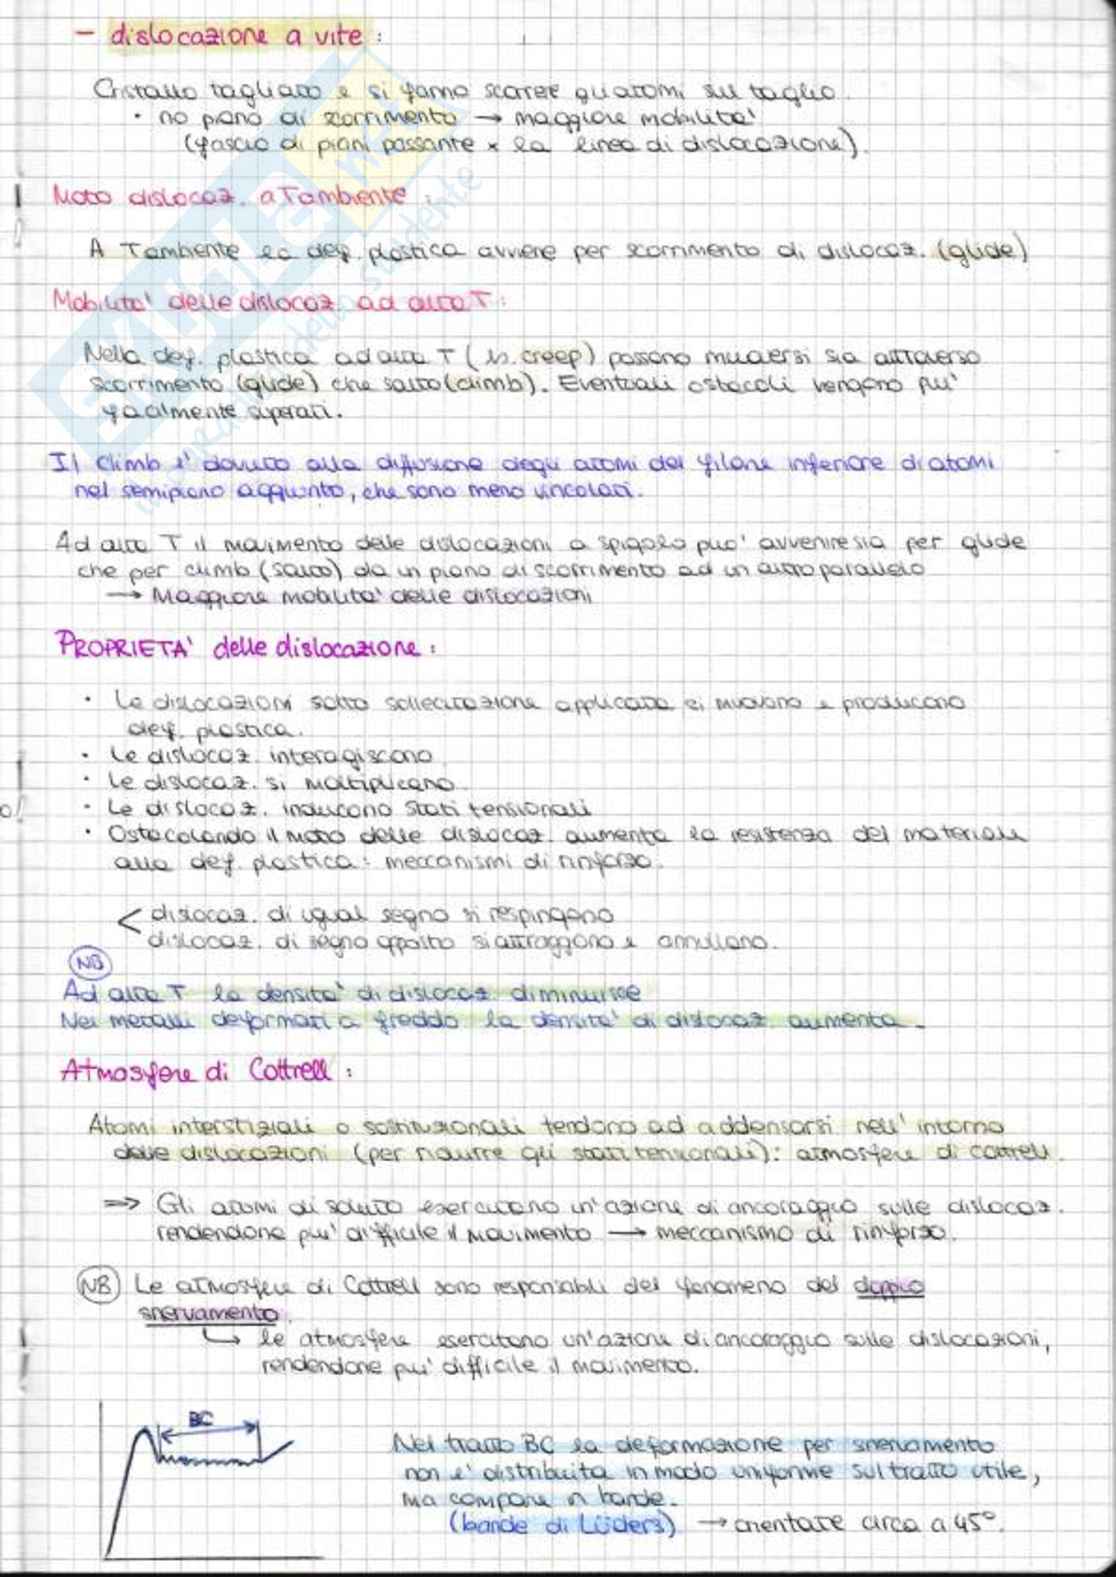 - dislocazione a vite:
Cristallo tagliato e si fanno scorrere gli atomi sul taglio
· no piano di scorrimento → maggiore mobilità'
(fascio di piani passante x la linea di dislocazione).
Moto dislocaz. a Tambiente:
A Tambiente la def. plastica avviene per scorrimento di dislocaz. (glide)
Mobilita' delle dislocaz. ad alta T:
Nella def. plastica ad alta T ( creep) possono muoversi sia attraverso
scorrimento (glide) che salto (climb). Eventuali ostacoli vengono piu'
facilmente superati.
Il climb e' dovuto alla diffusione degli atomi del filone inferiore di atomi
nel semipiano aggiunto, che sono meno vincolati.
Ad alta T il movimento delle dislocazioni a spigolo puo' avvenire sia per glide
che per climb (salto) da un piano di scorrimento ad un altro parallelo
→ Maggiore mobilita' delle dislocazioni
PROPRIETA' delle dislocazione:
· Le dislocazioni sotto sollecitazione applicata si muovono e producono
def. plastica.
· Le dislocaz. interagiscono
· Le dislocaz. si moltiplicano
· Le dislocaz. inducono stati tensionali
· Ostacolando il moto delle dislocaz. aumenta la resistenza del materiale
alla def. plastica: meccanismi di rinforzo.
< dislocaz. di ugual segno si respingono
dislocaz. di segno opposto si attraggono e annullano.
NB
Ad alta T la densita' di dislocaz. diminuisce
Nei metalli deformati a freddo la densita' di dislocaz. aumenta.
Atmosfere di Cottrell:
Atomi interstiziali o sostituzionali tendono ad addensarsi nell'intorno
delle dislocazioni (per ridurre gli stati tensionali): atmosfere di Cottrell.
=> Gli atomi di soluto esercitano un'azione di ancoraggio sulle dislocaz.
rendendone piu' difficile il movimento → meccanismo di rinforzo.
NB Le atmosfere di Cottrell sono responsabili del fenomeno del doppio
snervamento.
↳ le atmosfere esercitono un'azione di ancoraggio sulle dislocazioni,
rendendone piu' difficile il movimento.
BC
Nel tratto BC la deformazione per snervamento
non e' distribuita in modo uniforme sul tratto utile,
ma compare in bande.
(bande di Lüders) → orientate circa a 45°.